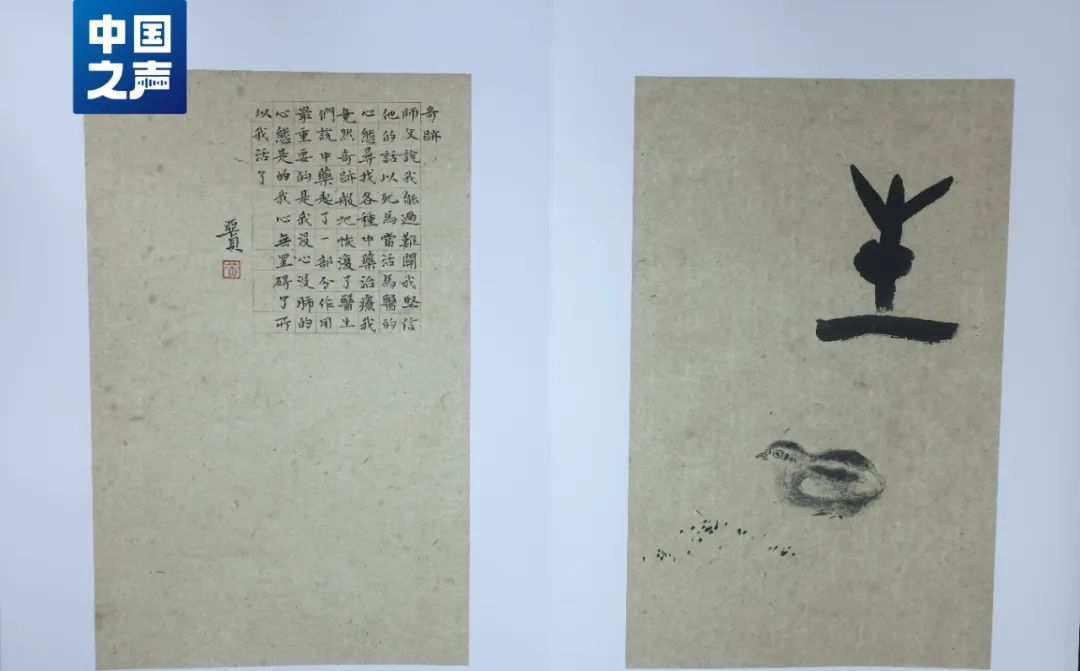 中国
之声
奇跡
師父說我能過難關我堅信
他的話以死馬當活馬醫的
心態尋找各種中藥治療我
竟然奇跡般地恢復了醫生
們說中藥起了一部分作用
最重要的是我沒心沒肺的
心態是的我心無罣碍了所
以我活了